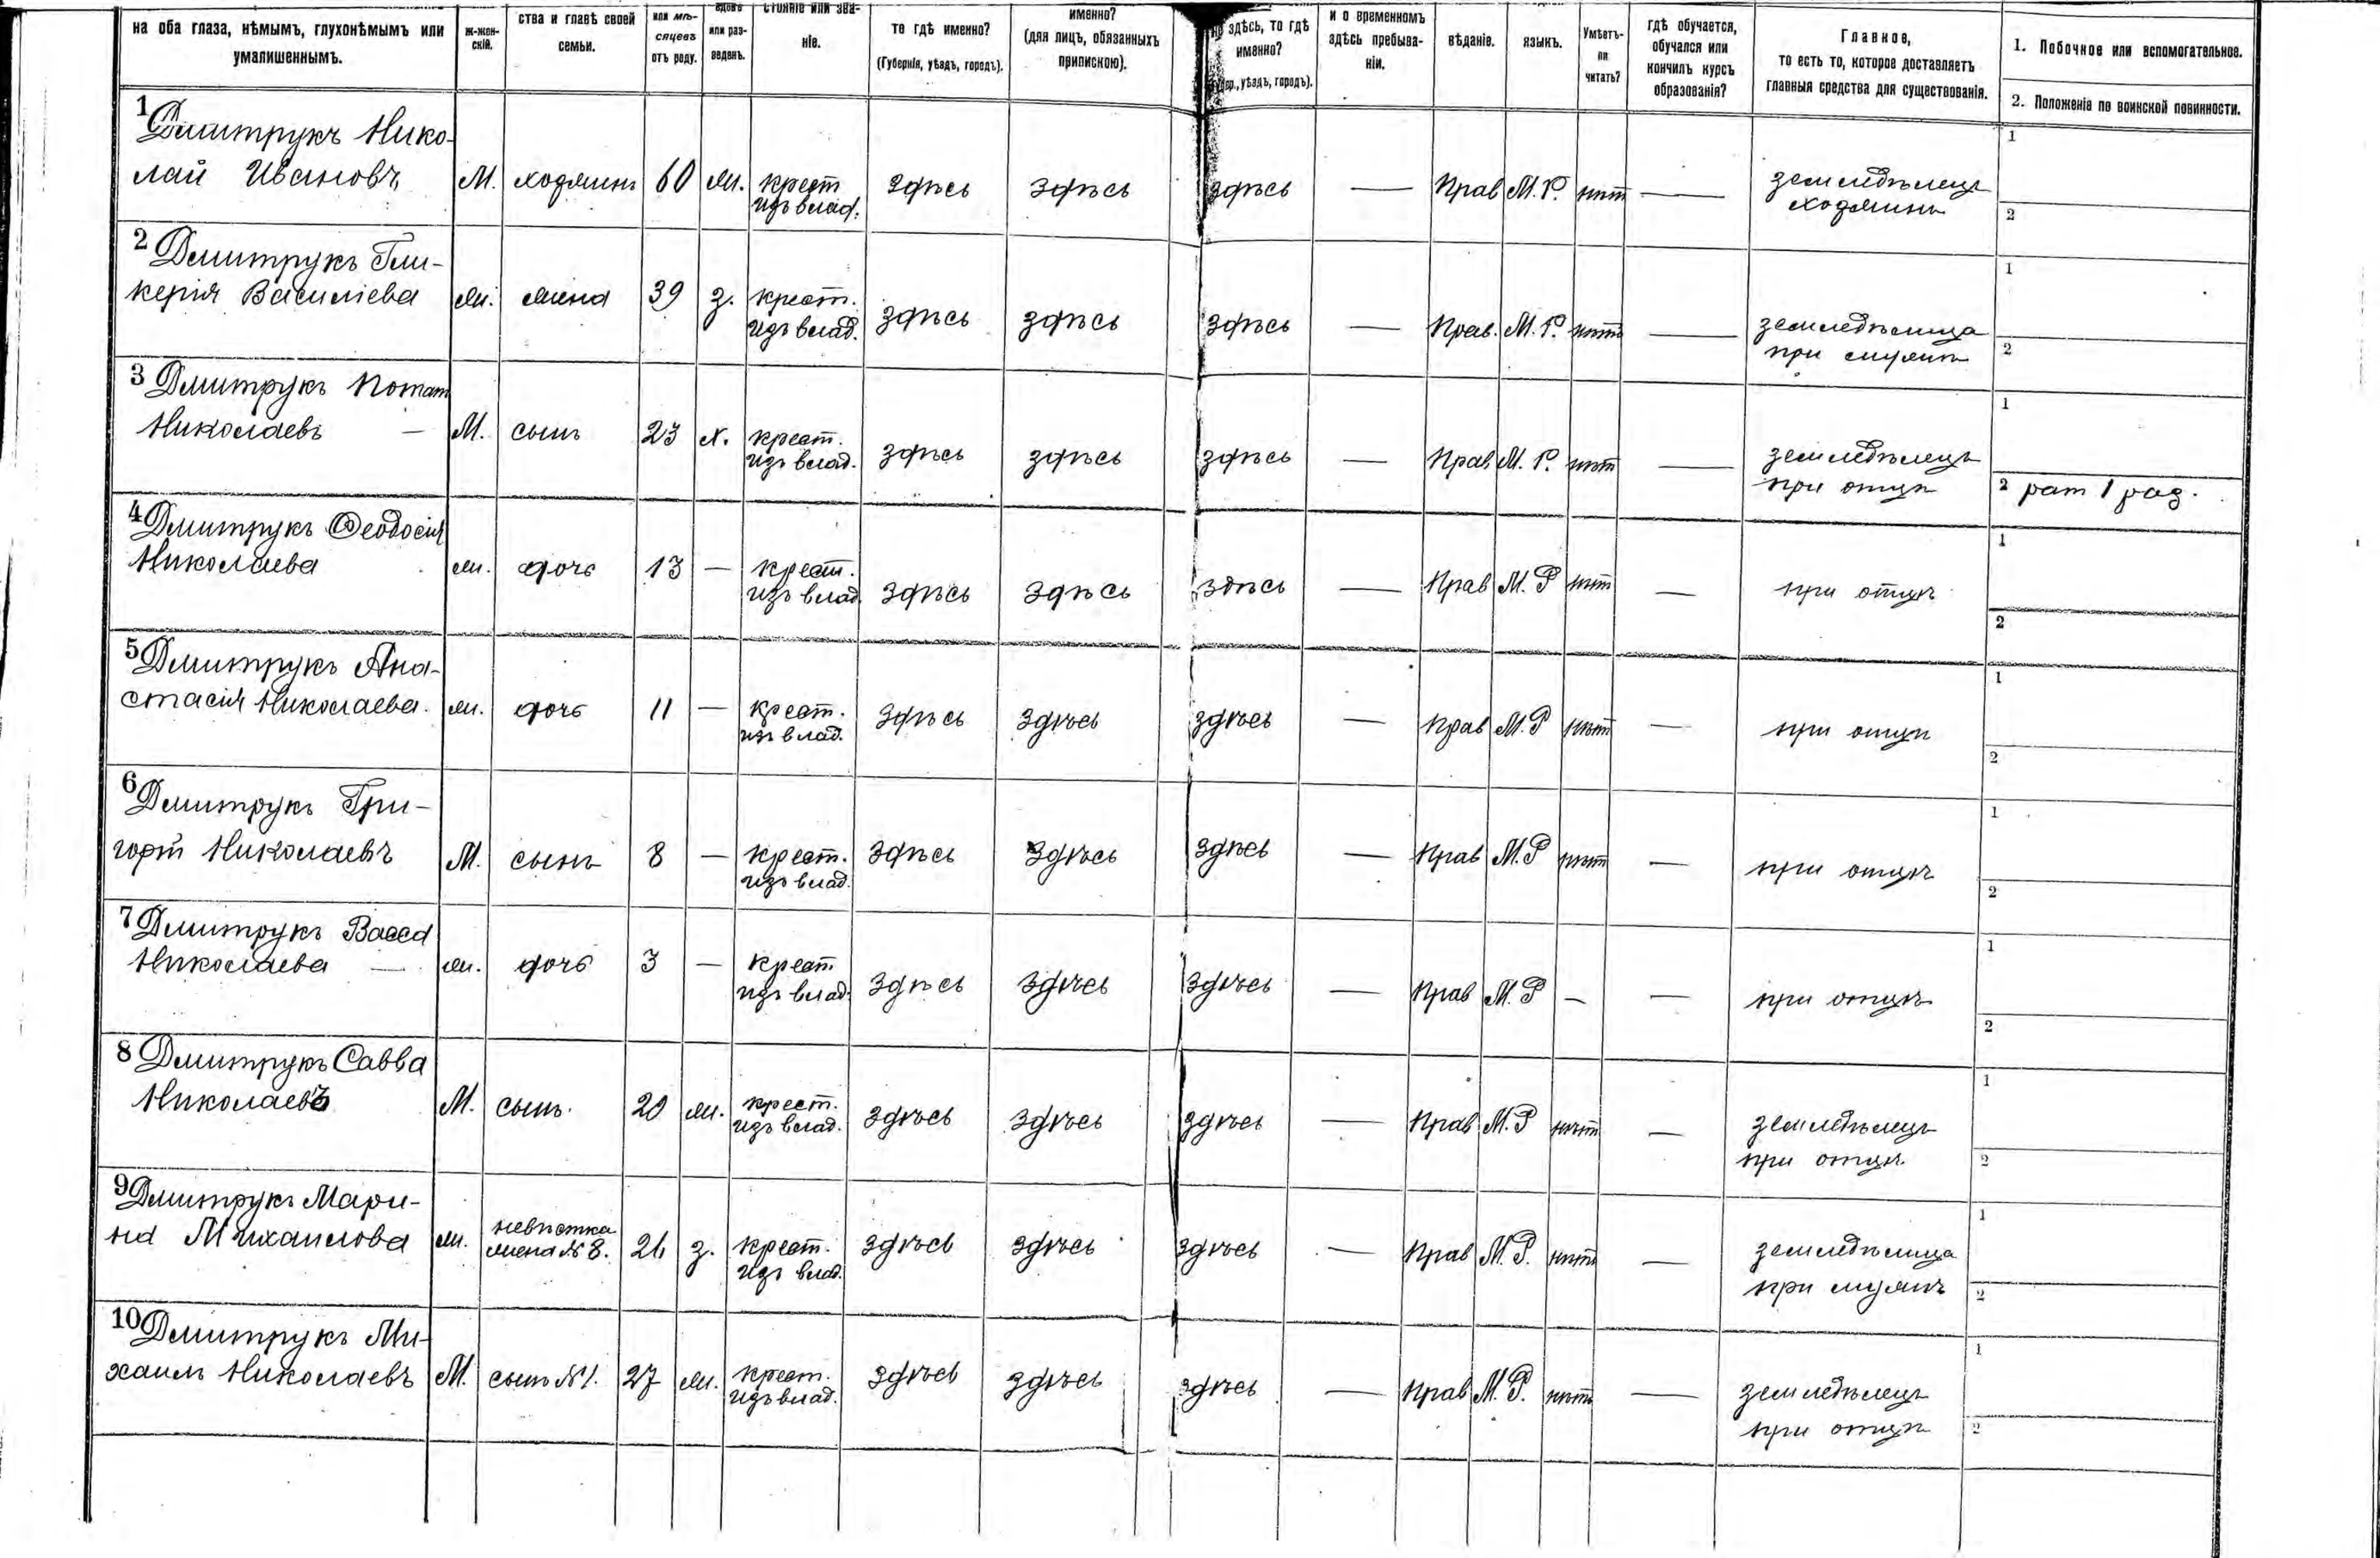 на оба глаза, нѣмымъ, глухонѣмымъ или умалишеннымъ.
ж-жен-скій.
ства и главѣ своей семьи.
или мѣ-сяцевъ отъ роду.
вдовъ или раз-веденъ.
стояніе или зва-ніе.
то гдѣ именно? (Губернія, уѣздъ, городъ).
именно? (для лицъ, обязанныхъ припискою).
здѣсь, то гдѣ именно? уѣздъ, городъ).
и о временномъ здѣсь пребыва-ніи.
вѣданіе.
языкъ.
Умѣетъ-ли читать?
гдѣ обучается, обучался или кончилъ курсъ образованія?
Главное, то есть то, которое доставляетъ главныя средства для существованія.
1. Побочное или вспомогательное.
2. Положеніе по воинской повинности.
1 Дмитрукъ Нико-
лай Ивановъ М. хозяинъ 60 ж. крест. изъ влад. здѣсь здѣсь здѣсь — Прав М. Р. нѣт — земледѣлецъ хозяинъ
1
2
2 Дмитрукъ Гли-
керія Василіева ж. жена 39 з. крест. изъ влад. здѣсь здѣсь здѣсь — Прав. М. Р. нѣт — земледѣлица при мужѣ
1
2
3 Дмитрукъ Потап
Николаевъ — М. сынъ 23 х. крест. изъ влад. здѣсь здѣсь здѣсь — Прав М. Р. нѣт — земледѣлецъ при отцѣ
1
2 рат 1 раз.
4 Дмитрукъ Ѳеодосія
Николаева ж. дочь 13 — крест. изъ влад. здѣсь здѣсь здѣсь — Прав М. Р нѣт — при отцѣ
1
2
5 Дмитрукъ Ана-
стасія Николаева. ж. дочь 11 — крест. изъ влад. здѣсь здѣсь здѣсь — Прав М. Р нѣт — при отцѣ
1
2
6 Дмитрукъ Гри-
горій Николаевъ М. сынъ 8 — крест. изъ влад. здѣсь здѣсь здѣсь — Прав М. Р нѣт — при отцѣ
1
2
7 Дмитрукъ Васса
Николаева — ж. дочь 3 — крест. изъ влад. здѣсь здѣсь здѣсь — Прав М. Р — — при отцѣ
1
2
8 Дмитрукъ Савва
Николаевъ М. сынъ 20 ж. крест. изъ влад. здѣсь здѣсь здѣсь — Прав М. Р нѣт — земледѣлецъ при отцѣ
1
2
9 Дмитрукъ Мари-
на Михаилова ж. невѣстка жена № 8. 21 з. крест. изъ влад. здѣсь здѣсь здѣсь — Прав М. Р. нѣт — земледѣлица при мужѣ
1
2
10 Дмитрукъ Ми-
хаилъ Николаевъ М. сынъ № 1. 27 ж. крест. изъ влад. здѣсь здѣсь здѣсь — Прав М. Р. нѣт — земледѣлецъ при отцѣ
1
2